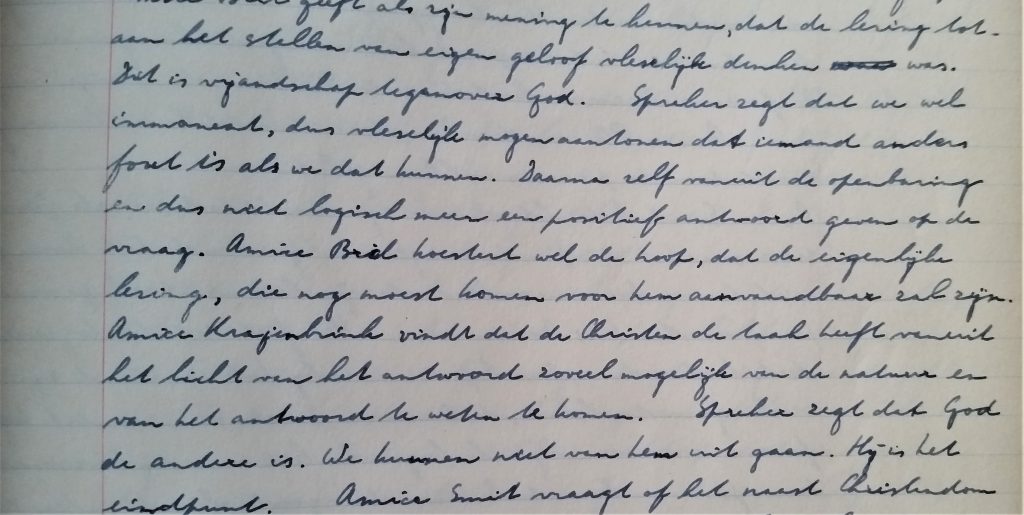 geeft als zijn mening te kennen, dat de lezing tot-
aan het stellen van eigen geloof vleselijk denken was.
Dit is vijandschap tegenover God. Spreker zegt dat we wel
immanent, dus vleselijk mogen aantonen dat iemand anders
fout is als we dat kunnen. Daarna zelf vanuit de openbaring
en dus niet logisch meer een positief antwoord geven op de
vraag. Amice Bril koestert wel de hoop, dat de eigenlijke
lezing, die nog moest komen voor hem aanvaardbaar zal zijn.
Amice Krajenbrink vindt dat de Christen de taak heeft vanuit
het licht van het antwoord zoveel mogelijk van de natuur en
van het antwoord te weten te komen. Spreker zegt dat God
de andere is. We kunnen niet van hem uit gaan. Hij is het
eindpunt. Amice Smit vraagt of het naast Christendom